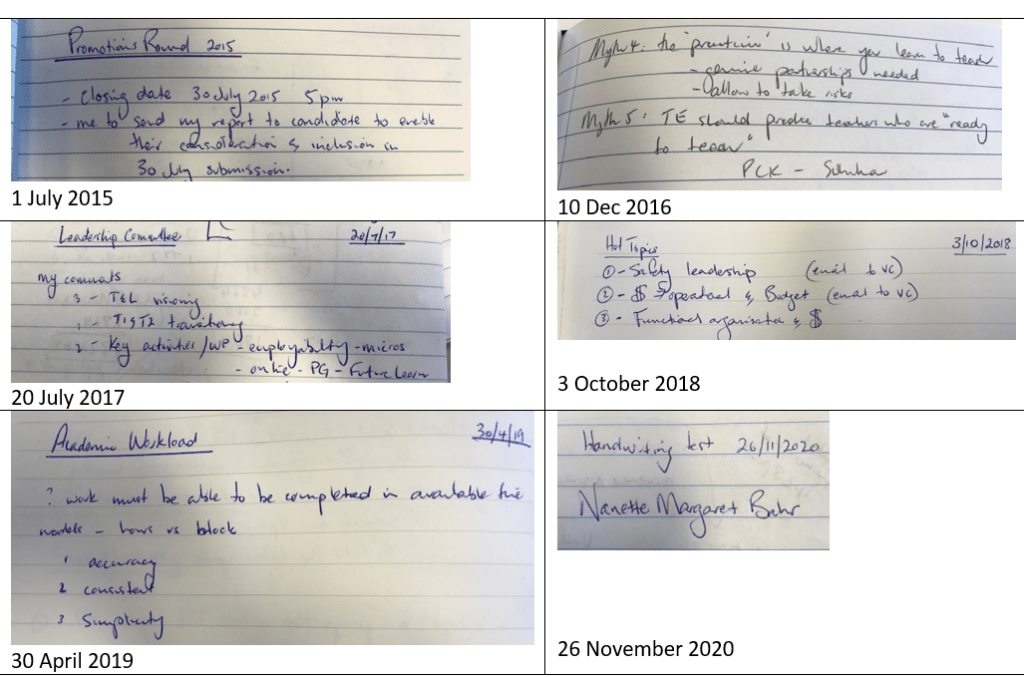 Promotions Round 2015
- Closing date 30 July 2015 5pm
- me to send my report to candidate to enable
their consideration & inclusion in
30 July submission.
1 July 2015
Myth 4: the "practicum" is where you learn to teach
- genuine partnerships needed
- allow to take risks
Myth 5: TE should produce teachers who are "ready
to teach"
PCK -
10 Dec 2016
Leadership Committee 20/7/17
my comments
3 - T&L visioning
1 - T1 & T2
2 - Key activities / WP - employability - micros
- online - PG - Future Learn
20 July 2017
Hot Topics 3/10/2018
① - Safety leadership (email to VC)
② - $ → operational & Budget (email to VC)
③ - Functional organisation & $
3 October 2018
Academic Workload 30/4/19
? work must be able to be completed in available time
models - hours vs block
1 accuracy
2 consistent
3 Simplicity
30 April 2019
Handwriting test 26/11/2020
Nanette Margaret Bahr
26 November 2020